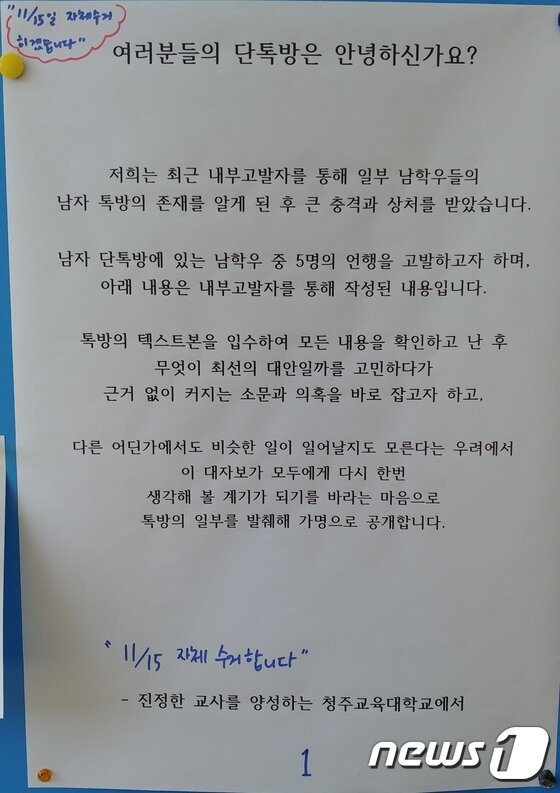 "11/15일 자체수거
하겠습니다"
여러분들의 단톡방은 안녕하신가요?
저희는 최근 내부고발자를 통해 일부 남학우들의
남자 톡방의 존재를 알게 된 후 큰 충격과 상처를 받았습니다.
남자 단톡방에 있는 남학우 중 5명의 언행을 고발하고자 하며,
아래 내용은 내부고발자를 통해 작성된 내용입니다.
톡방의 텍스트본을 입수하여 모든 내용을 확인하고 난 후
무엇이 최선의 대안일까를 고민하다가
근거 없이 커지는 소문과 의혹을 바로 잡고자 하고,
다른 어딘가에서도 비슷한 일이 일어날지도 모른다는 우려에서
이 대자보가 모두에게 다시 한번
생각해 볼 계기가 되기를 바라는 마음으로
톡방의 일부를 발췌해 가명으로 공개합니다.
"11/15 자체 수거합니다"
- 진정한 교사를 양성하는 청주교육대학교에서
1
news1